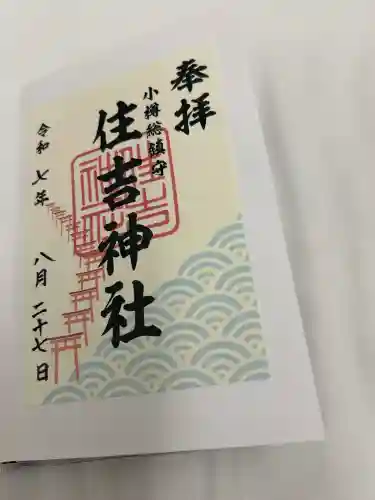 奉拝
小樽総鎮守
住吉神社
令和七年 八月二十七日
住吉神社